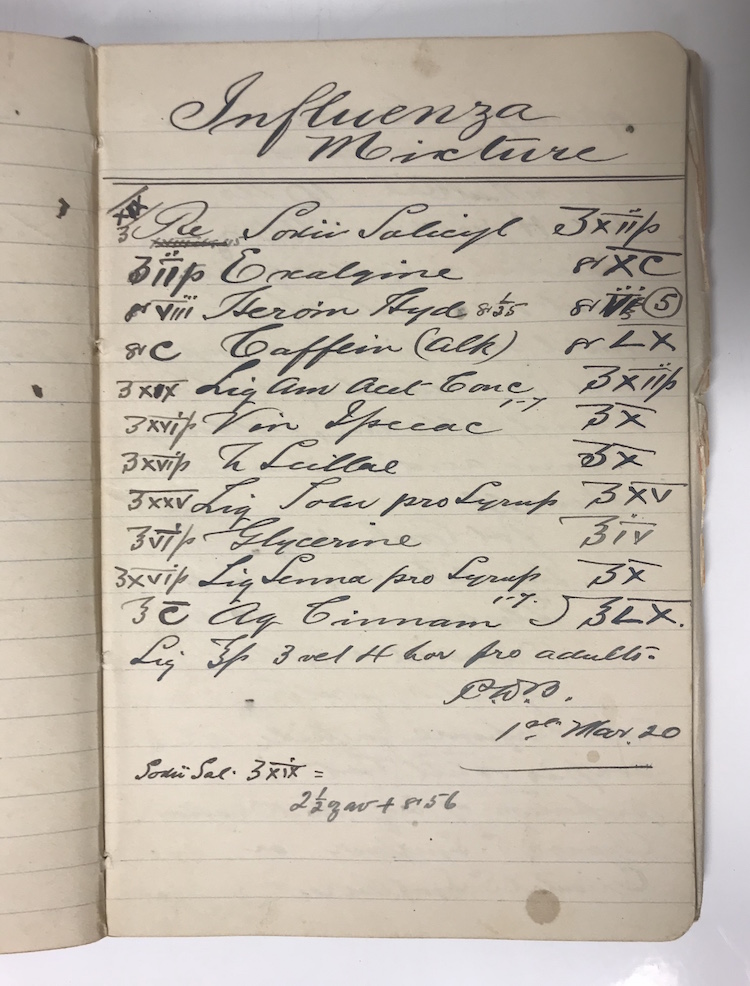 Influenza
Mixture
ʒxix Re Sodii Salicyl ʒxiiſs
ʒiiſs Exalgine gr XC
gr viii Heroin Hyd gr 1/35 gr (5)
gr C Caffein (Alk) gr LX
ʒxix Liq Am Acet Conc 1-7 ʒxiiſs
ʒxviſs Vin Ipecac ʒX
ʒxviſs Tr Scillae ʒX
ʒxxv Liq Tolu pro Syrup ʒXV
ʒviſs Glycerine ʒiv
ʒxviſs Liq Senna pro Syrup ʒX
ʒC Aq Cinnam 1-7. ʒLX.
Sig ʒſs 3 vel 4 hor pro adults.
1st Mar. 20
Sodii Sal. ʒxix =
2½ oz av + gr 56